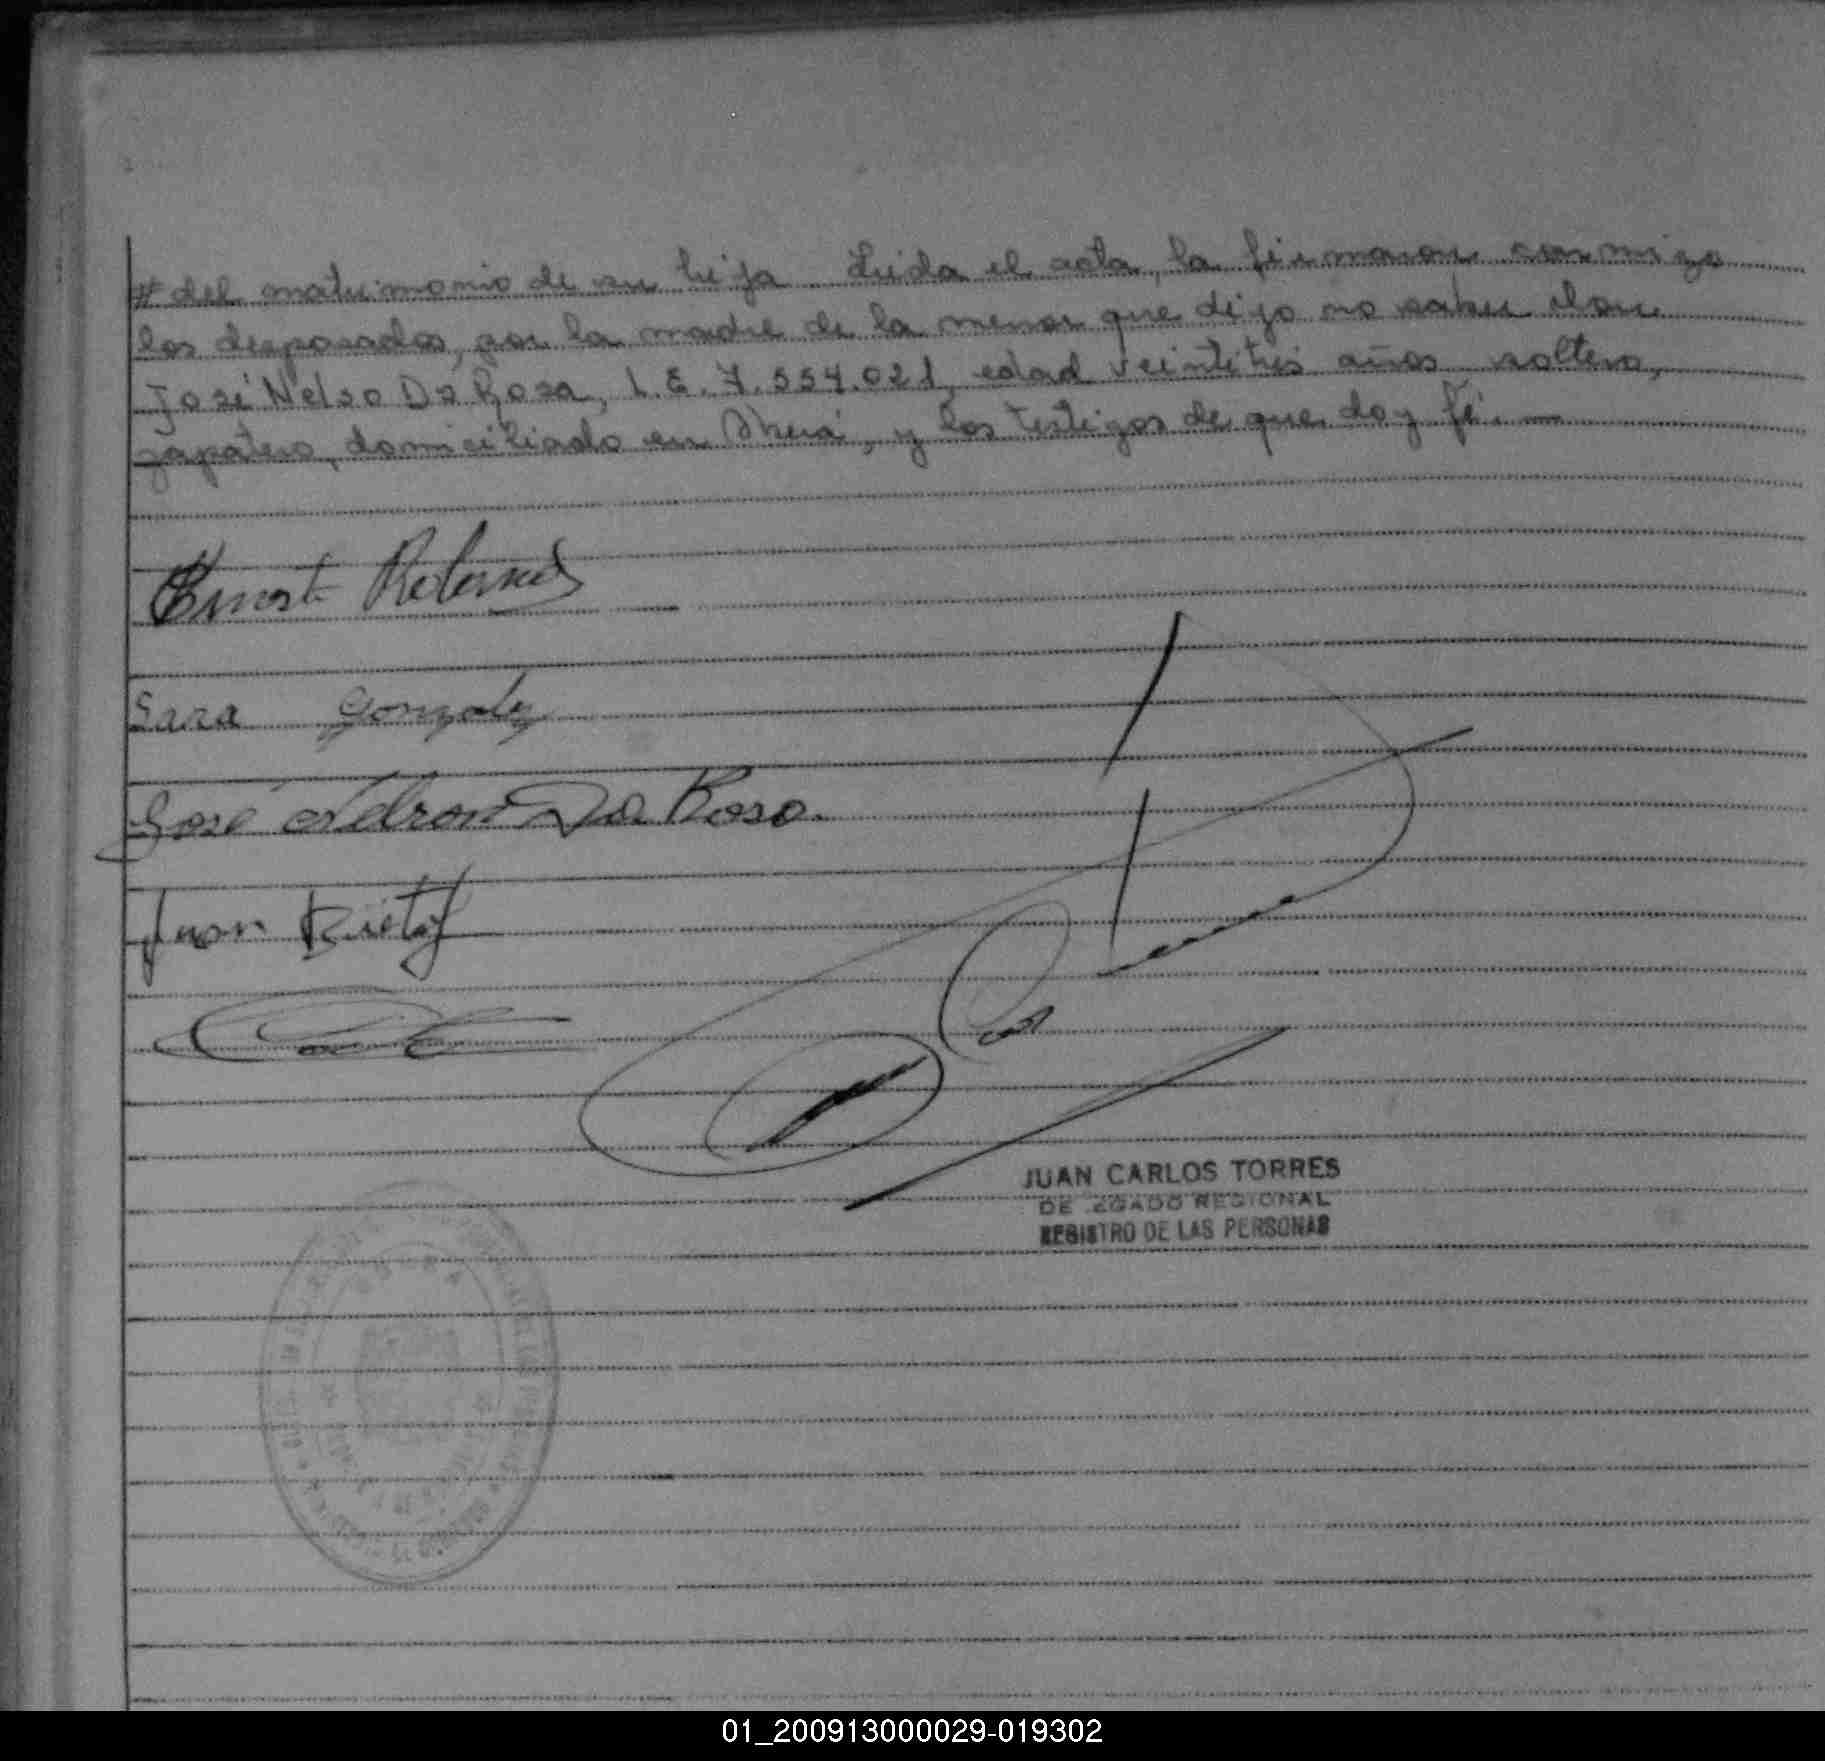 # del matrimonio de su hija Leida el acta, la firmaron conmigo
los desposados, por la madre de la menor que dijo no saber Don
José Nelso Da Rosa, L.E. 7.554.021, edad veintitres años soltero,
zapatero, domiciliado en Oberá, y los testigos de que doy fé.—
Ernesto
Sara Gonzalez
José Nelson Da Rosa.
Juan
JUAN CARLOS TORRES
DE EGADO REGIONAL
REGISTRO DE LAS PERSONAS
01_200913000029-019302